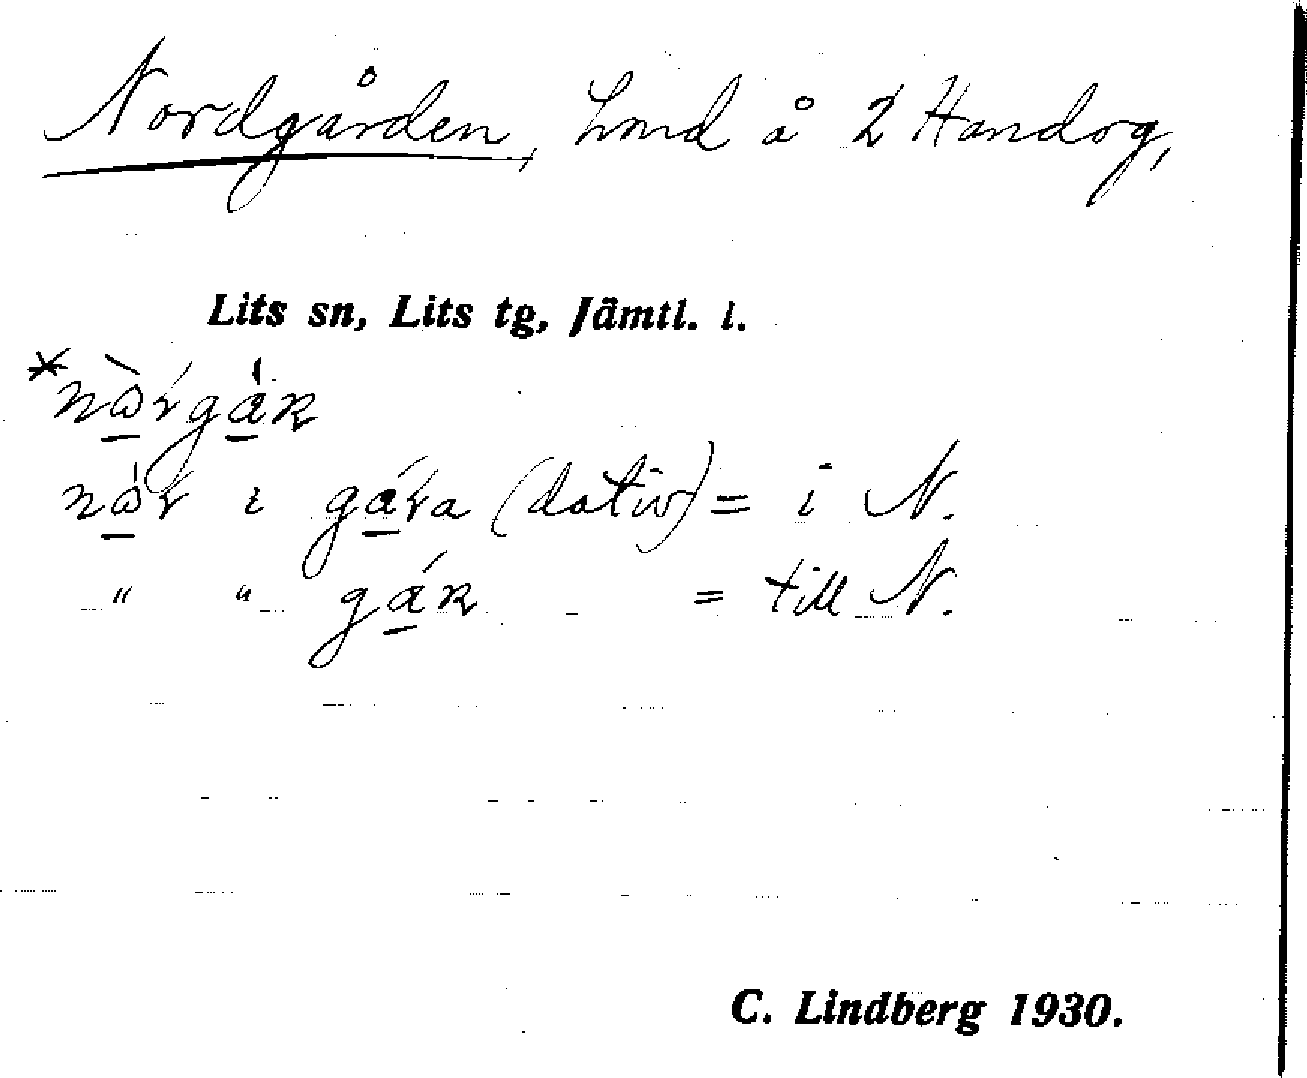 Nordgården, hmd å 2 Handog,
Lits sn, Lits tg, Jämtl. l.
*nɷ̀rgàʀ
nɷ̀r ɩ gára (dativ) = i N.
" " gáʀ = till N.
C. Lindberg 1930.